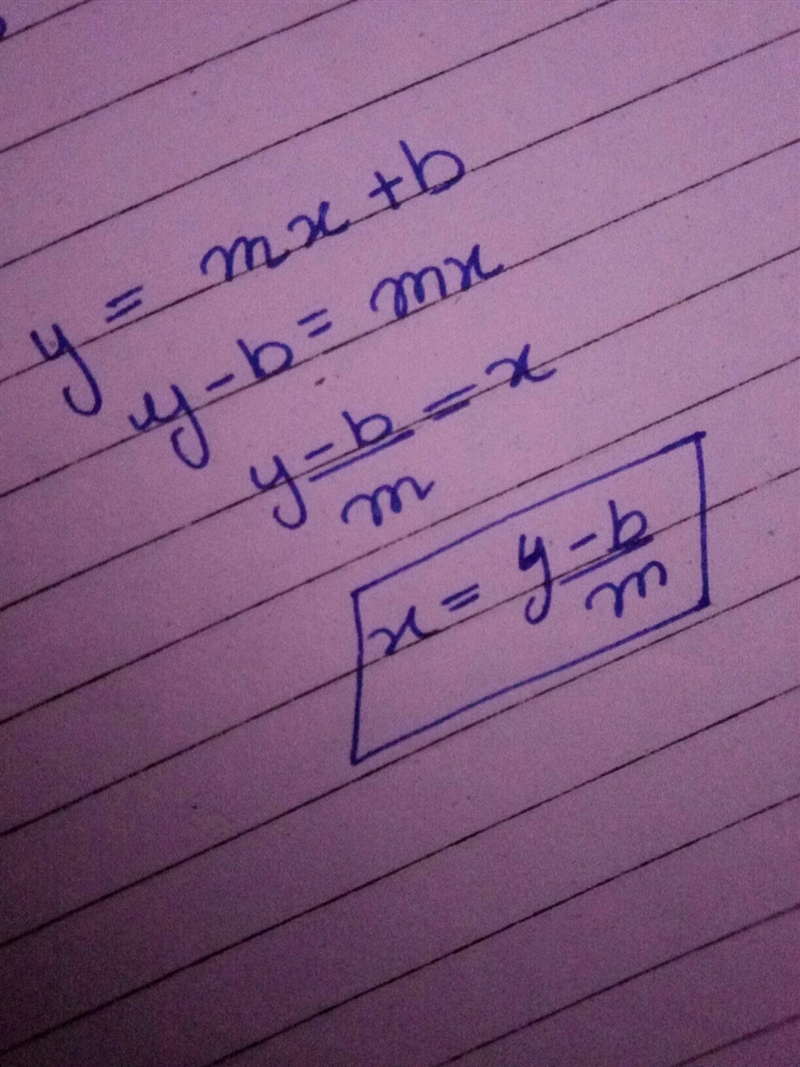 y = mx + b
y - b = mx
y - b / m = x
x = y - b / m